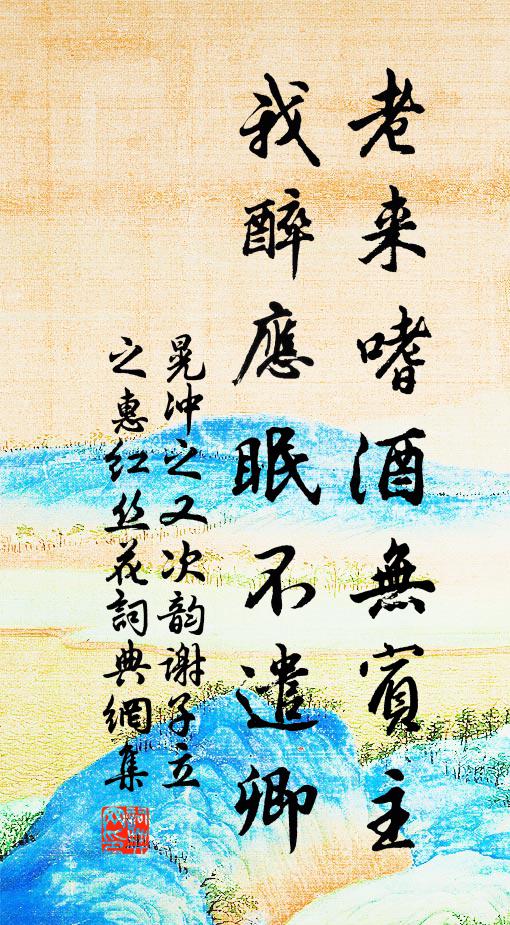 老来嗜酒無賓主
我醉應眠不遣卿
晁冲之又次韵谢子立
之惠红丝花詞典網集